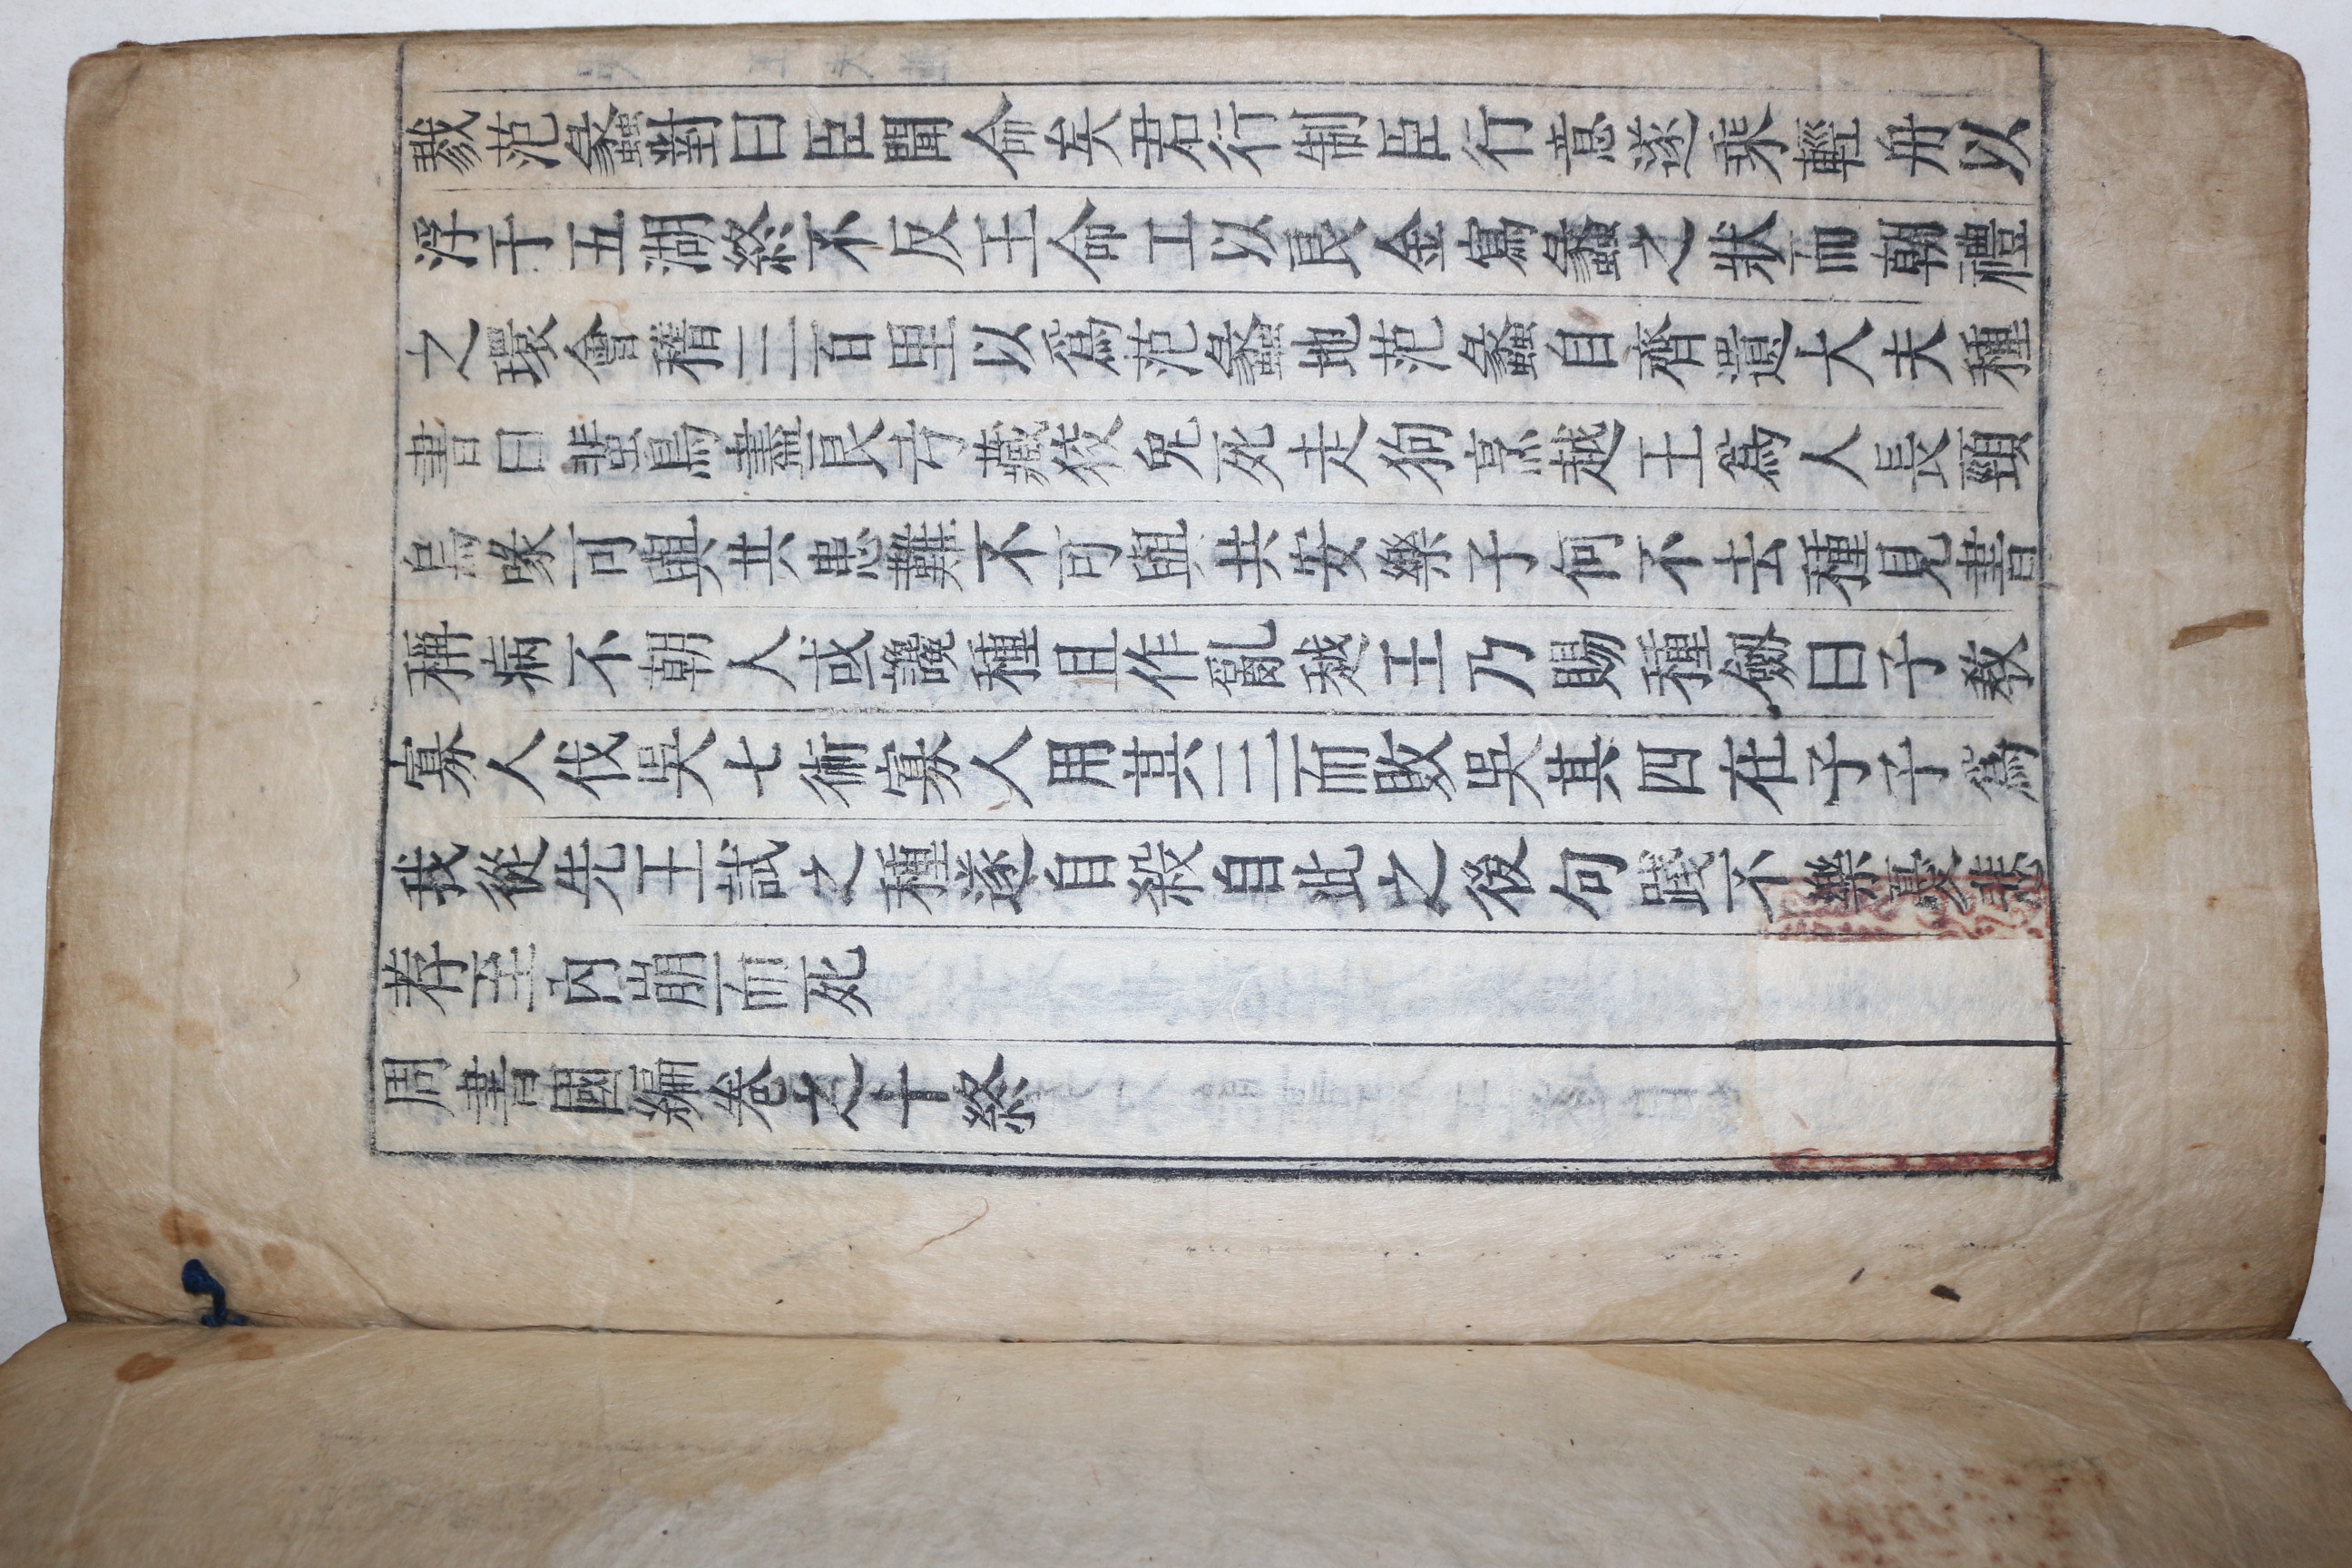 戮范蠡對曰臣聞命矣君行制臣行意遂乘輕舟以
浮于五湖終不反王命工以良金寫蠡之狀而朝禮
之環會稽三百里以爲范蠡地范蠡自齊遺大夫種
書曰蜚鳥盡良弓藏狡兔死走狗烹越王爲人長頸
鳥喙可與共患難不可與共安樂子何不去種見書
稱病不朝人或讒種且作亂越王乃賜種劒曰子敎
寡人伐吳七術寡人用其三而敗吳其四在子子爲
我從先王試之種遂自殺自此之後句踐不樂憂悲
荐至內崩而死
周書國編卷之十終